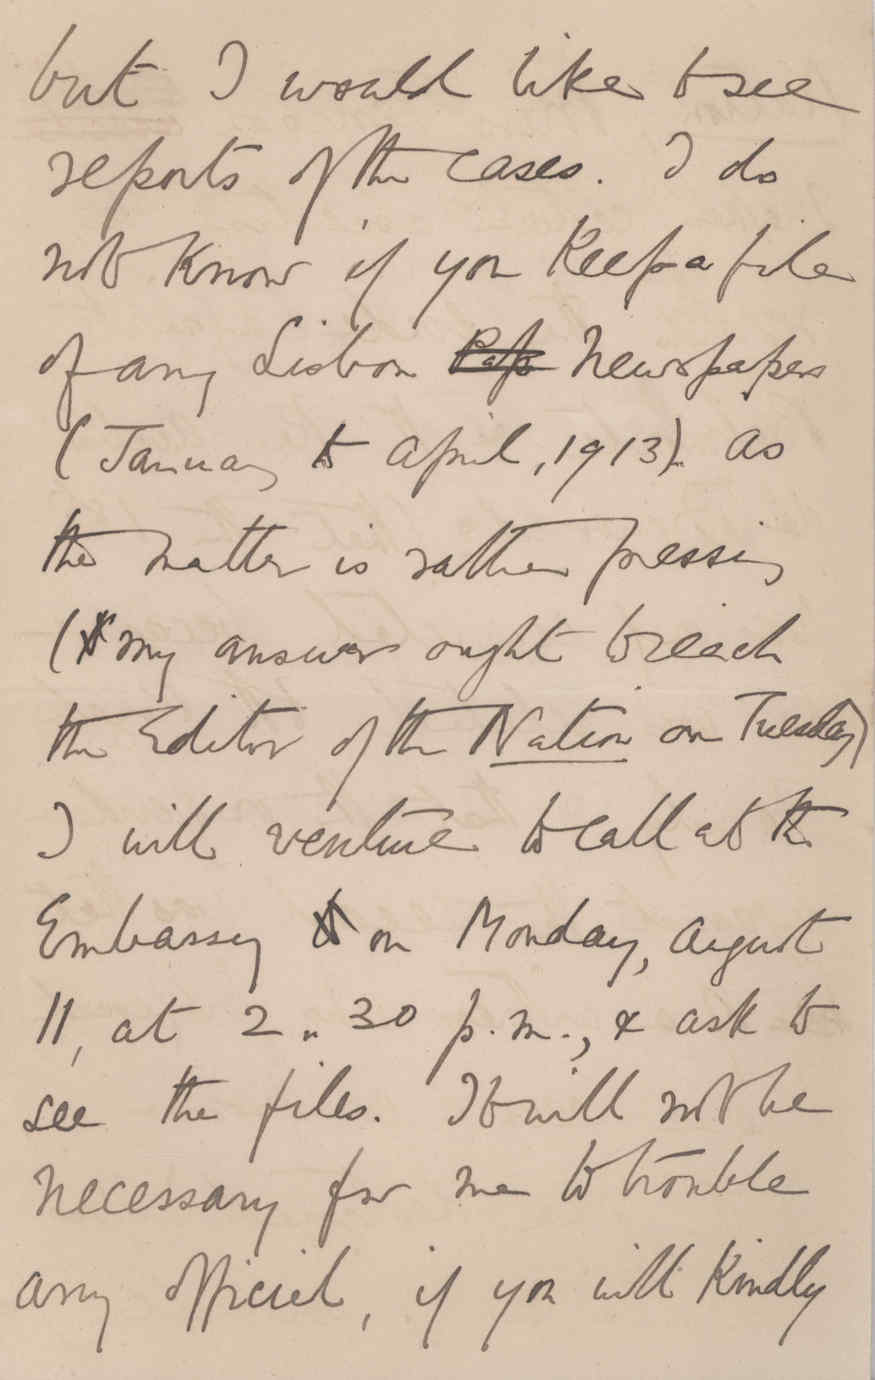 but I would like to see
reports of the cases. I do
not know if you keep a file
of any Lisbon Pap Newspapers
(January to April, 1913). As
the matter is rather pressing
(my answer ought to reach
the Editor of the Nation on Tuesday)
I will venture to call at the
Embassy on Monday, August
11, at 2.30 p.m., & ask to
see the files. It will not be
necessary for me to trouble
any official, if you will kindly